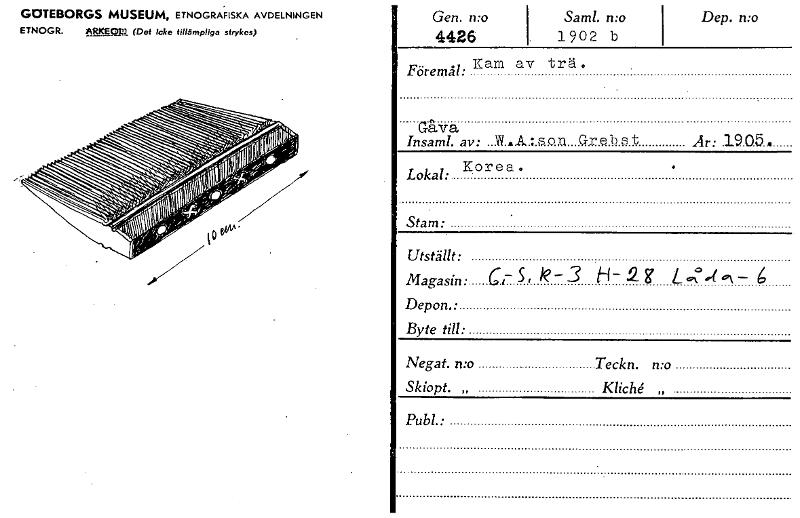 GÖTEBORGS MUSEUM, ETNOGRAFISKA AVDELNINGEN
ETNOGR. ARKEOL. (Det icke tillämpliga strykes)
10 cm.
Gen. n:o Saml. n:o Dep. n:o
4426 1902 b
Föremål: Kam av trä.
Gåva
Insaml. av: W.A:son Grebst År: 1905.
Lokal: Korea.
Stam:
Utställt:
Magasin: G.-S. R-3 H-28 Låda-6
Depon.:
Byte till:
Negat. n:o Teckn. n:o
Skiopt. „ Kliché „
Publ.: